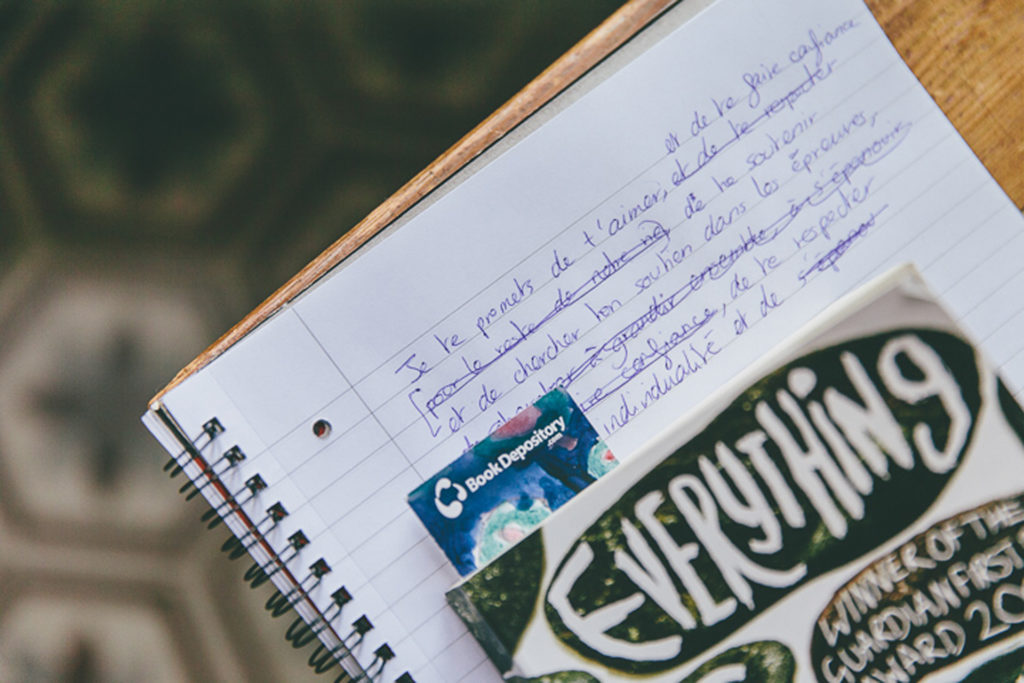 et de te faire confiance
Je te promets de t'aimer, et de te respecter
[pour le reste de notre vie] de te soutenir
et de chercher ton soutien dans les épreuves,
à grandir ensemble, à s'épanouir
confiance, de te respecter
individualité et de s'épanouir
Book Depository
.com
EVERYTHING
WINNER OF THE
GUARDIAN FIRST
AWARD 20